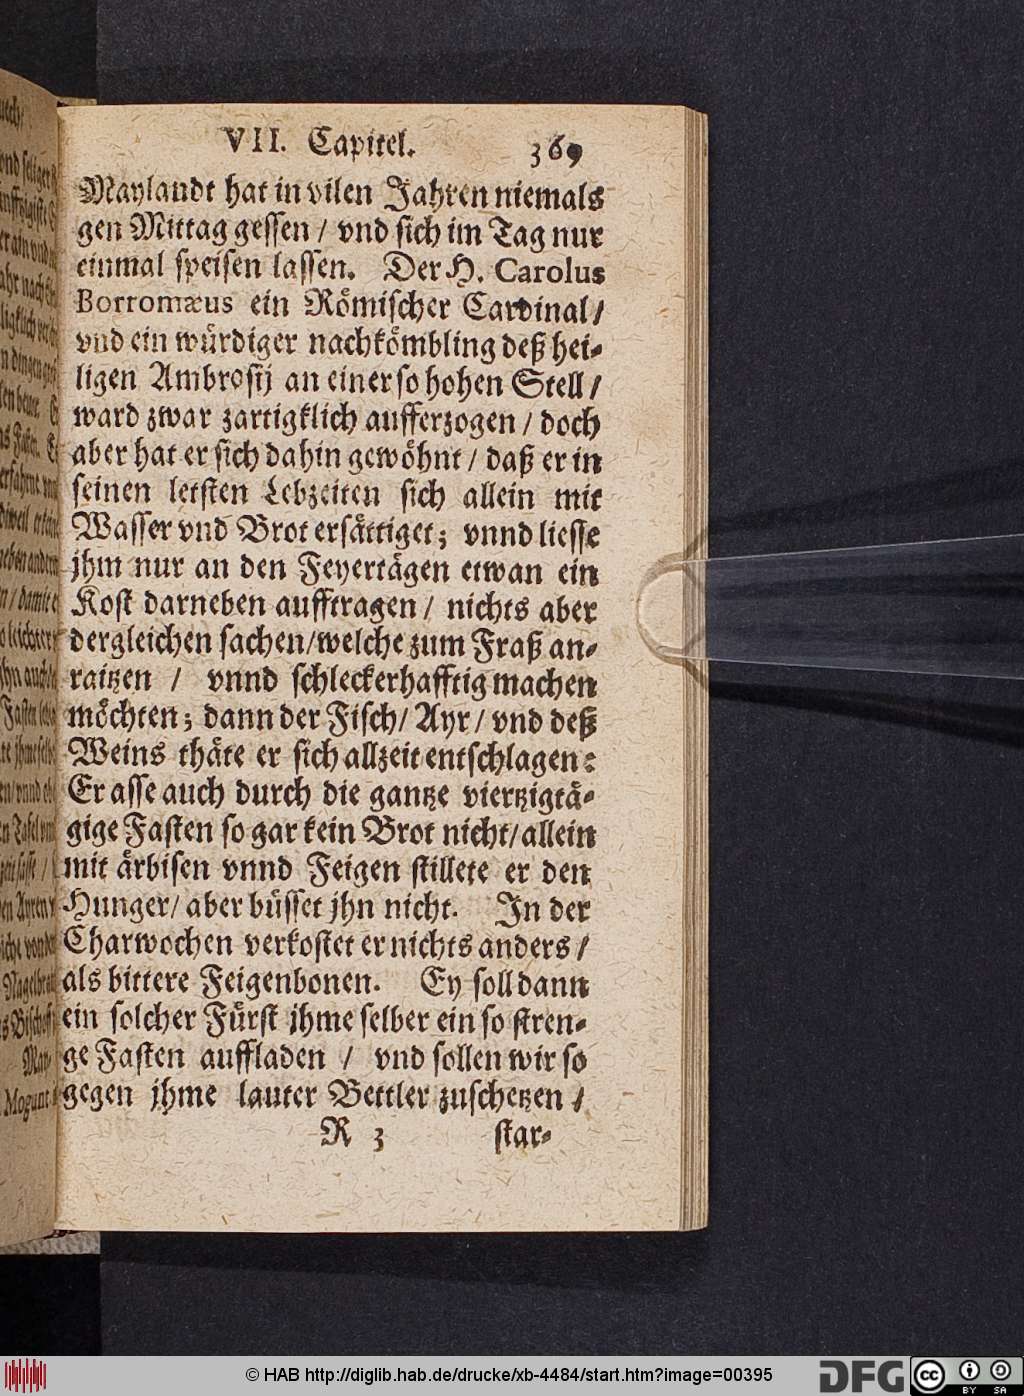 VII. Capitel. 369
Maylandt hat in vilen Jahren niemals
gen Mittag gessen / vnd sich im Tag nur
einmal speisen lassen. Der H. Carolus
Borromæus ein Römischer Cardinal /
vnd ein würdiger nachkömbling deß hei-
ligen Ambrosij an einer so hohen Stell /
ward zwar zartigklich aufferzogen / doch
aber hat er sich dahin gewöhnt / daß er in
seinen letsten Lebzeiten sich allein mit
Wasser vnd Brot ersättiget; vnnd liesse
jhm nur an den Feyertägen etwan ein
Kost darneben aufftragen / nichts aber
dergleichen sachen / welche zum Fraß an-
raitzen / vnnd schleckerhafftig machen
möchten; dann der Fisch / Ayr / vnd deß
Weins thäte er sich allzeit entschlagen:
Er asse auch durch die gantze viertzigtä-
gige Fasten so gar kein Brot nicht / allein
mit ärbisen vnnd Feigen stillete er den
Hunger / aber büsset jhn nicht. In der
Charwochen verkostet er nichts anders /
als bittere Feigenbonen. Ey soll dann
ein solcher Fürst jhme selber ein so stren-
ge Fasten auffladen / vnd sollen wir so
gegen jhme lauter Bettler zuschetzen /
R 3 star-
© HAB http://diglib.hab.de/drucke/xb-4484/start.htm?image=00395
DFG
cc BY SA